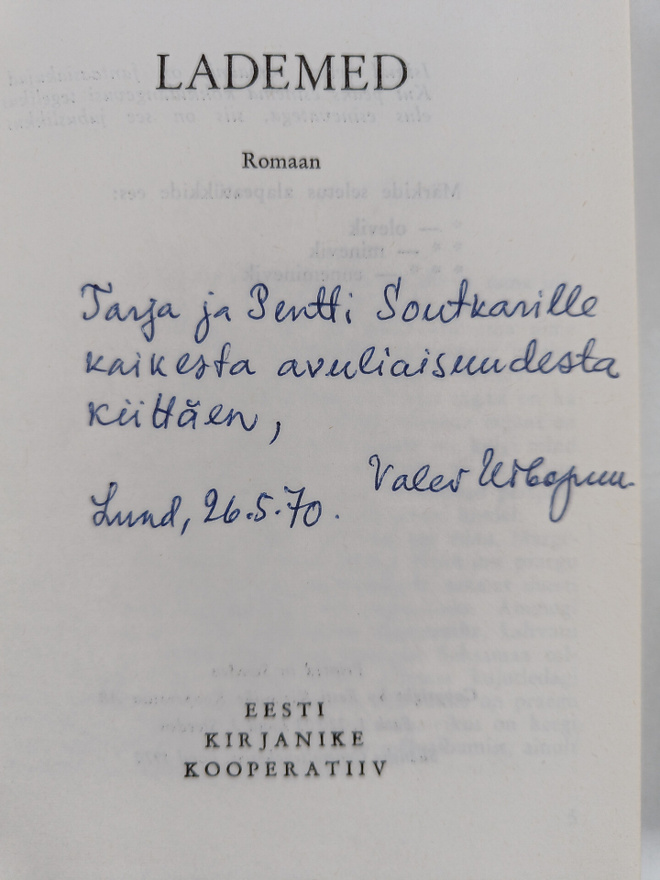 LADEMED
Romaan
Tarja ja Pentti Soutkarille
kaikesta avuliaisuudesta
kiittäen,
Valev Uibopuu
Lund, 26.5.70.
EESTI
KIRJANIKE
KOOPERATIIV